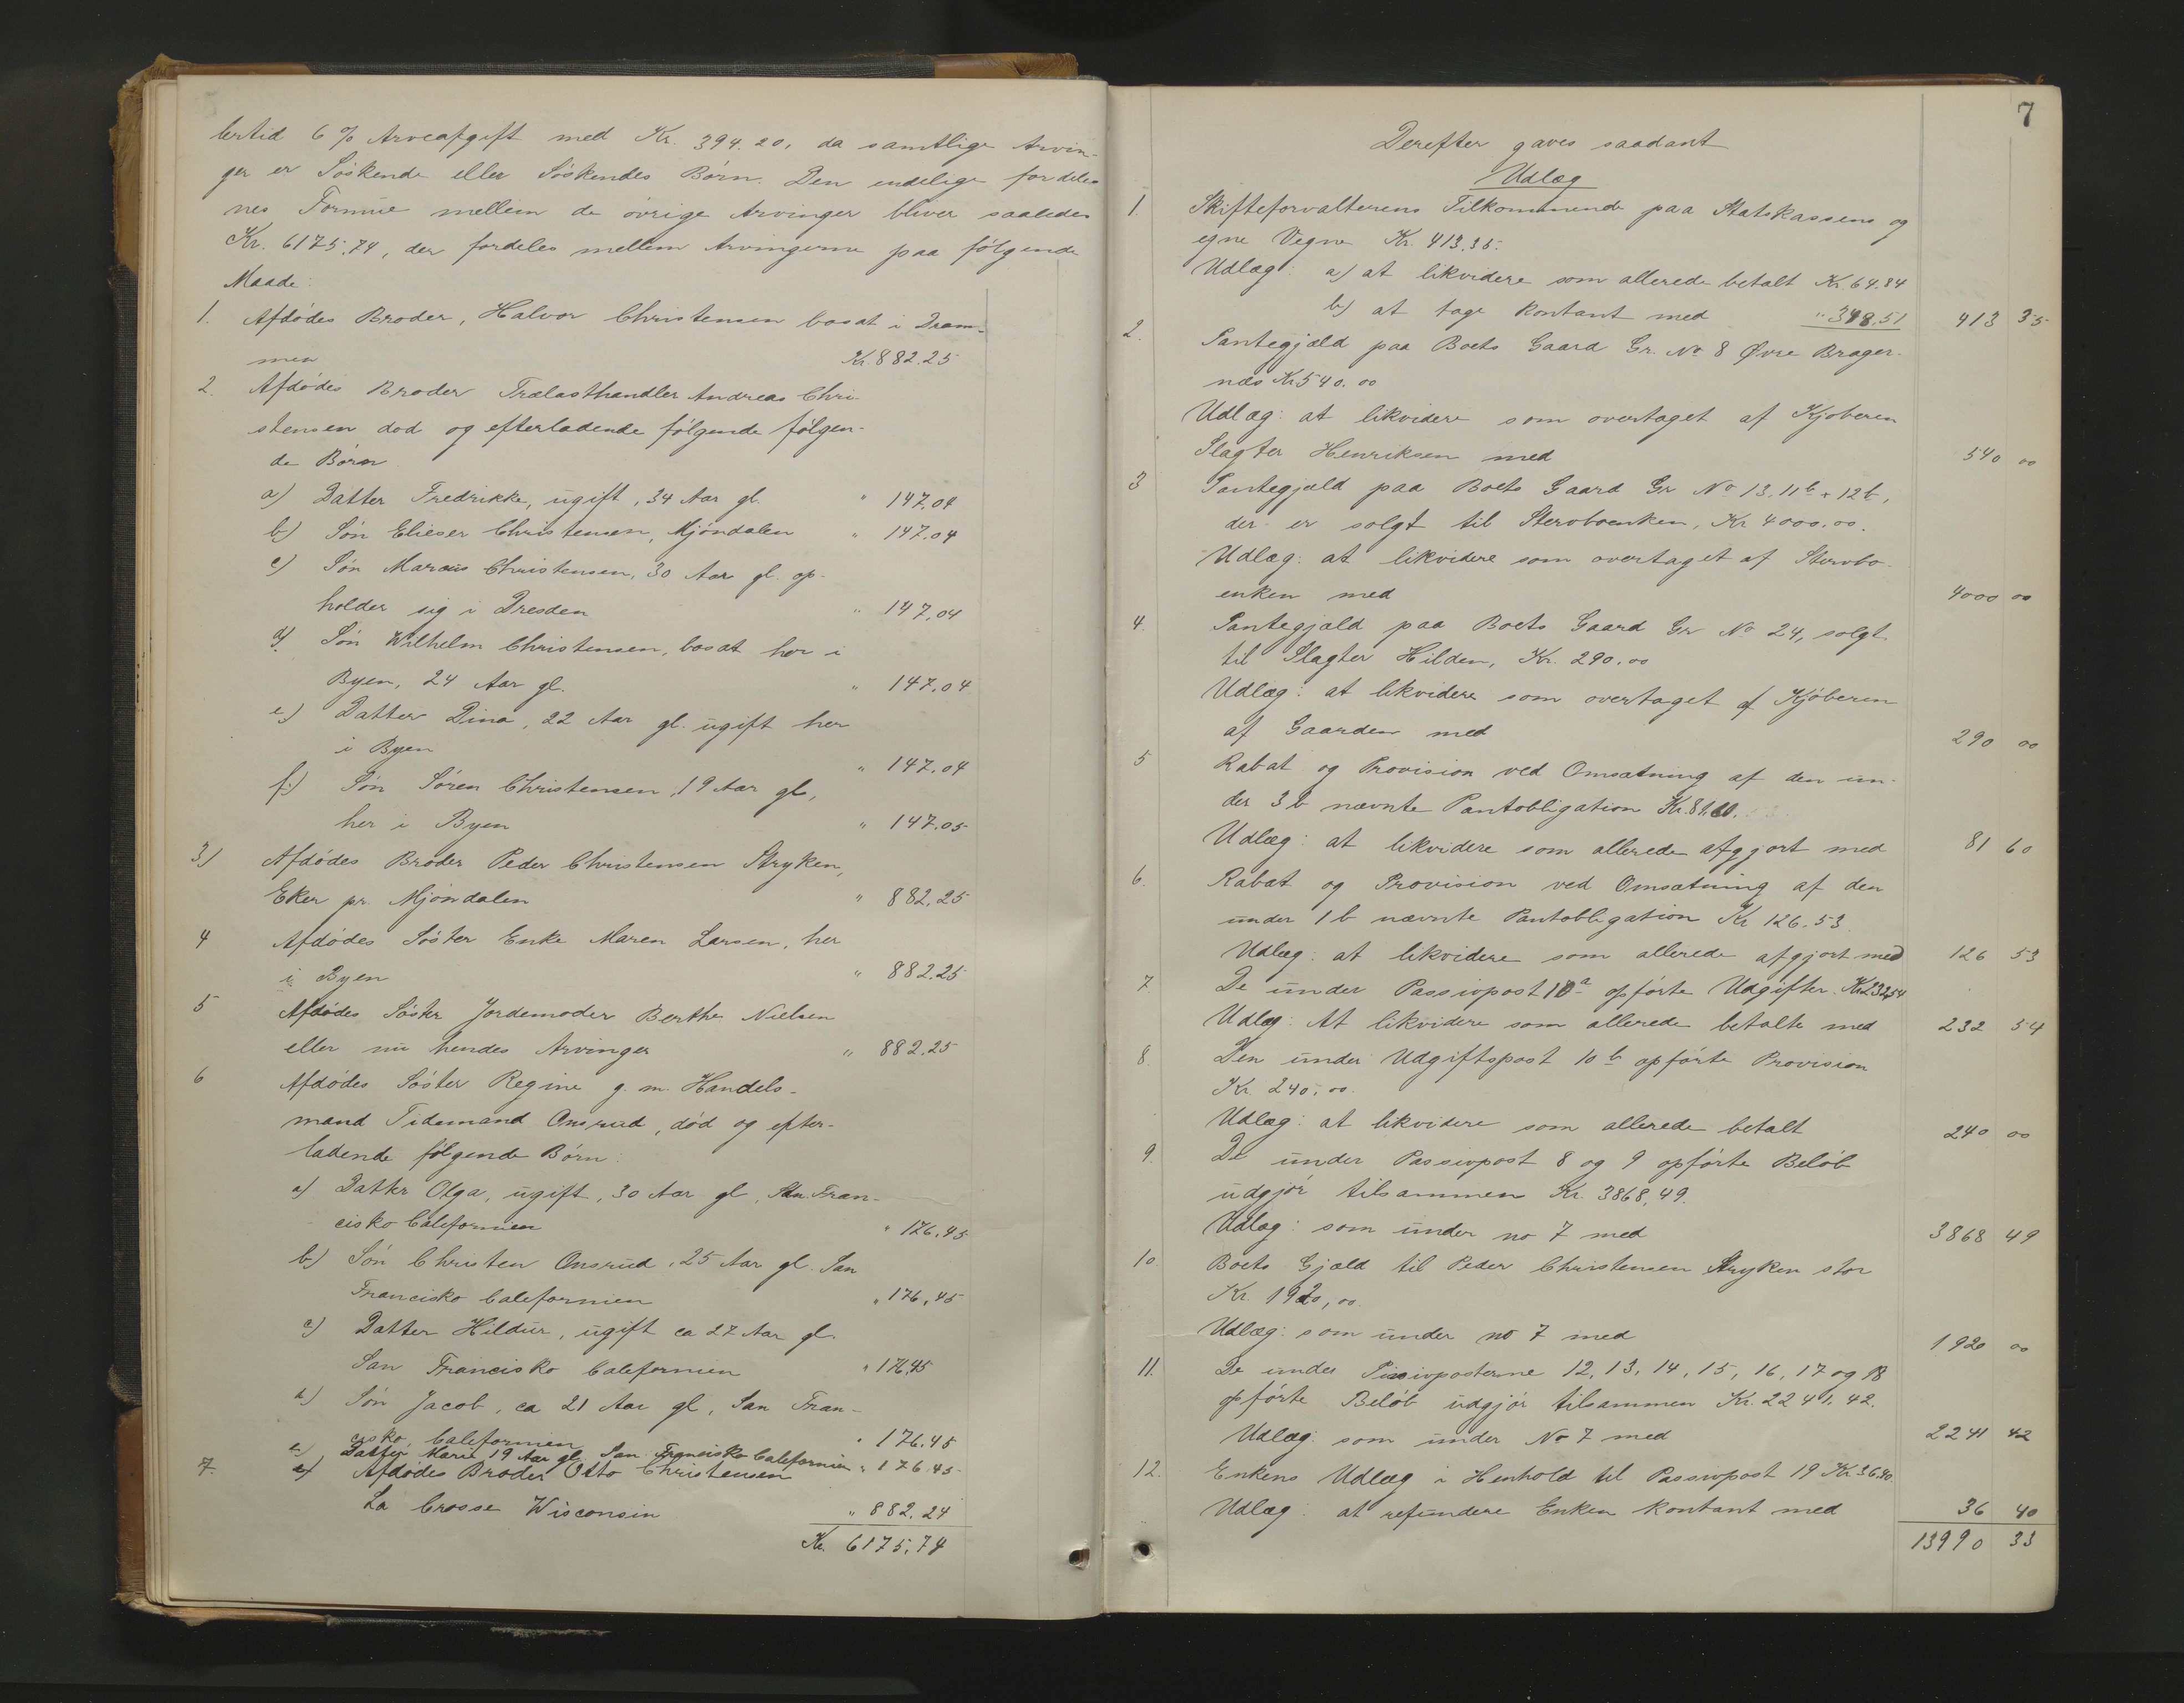 lertid 6 % Arveafgift med Kr. 394.20, da samtlige Arvin-
ger er Söskende eller Söskendes Börn. Den endelige for deles
nes Formue mellem de övrige Arvinger bliver saaledes
Kr. 6175.74, der fordeles mellem Arvingerne paa fölgende
Maade:
1. Afdödes Broder, Halvor Christensen bosat i Dram-
men Kr. 882.25
2. Afdödes Broder Trælasthandler Andreas Chri-
stensen död og efterladende fölgende fölgen-
de Börn
a) Datter Fredrikke, ugift, 34 Aar gl. " 147.04
b) Sön Elieser Christensen, Mjöndalen " 147.04
c) Sön Marcus Christensen, 30 Aar gl. op-
holder sig i Dresden " 147.04
d) Sön Wilhelm Christensen, bosat her i
Byen, 24 Aar gl. " 147.04
e) Datter Dina, 22 Aar gl. ugift her
i Byen " 147.04
f.) Sön Sören Christensen, 19 Aar gl,
her i Byen " 147.05
3) Afdödes Broder Peder Christensen Stryken,
Eker pr. Mjöndalen " 882.25
4 Afdödes Söster Enke Maren Larsen, her
i Byen " 882.25
5 Afdödes Söster Jordemoder Berthe Nielsen
eller nu hendes Arvinger " 882.25
6 Afdödes Söster Regine g. m. Handels-
mand Tidemand Onsrud, död og efter-
ladende fölgende Börn:
a) Datter Olga, ugift, 30 Aar gl, San Fran-
cisko Californien " 176.45
b) Sön Christen Onsrud, 25 Aar gl. San
Francisko Californien " 176.45
c) Datter Hildur, ugift ca 27 Aar gl.
San Francisko Californien " 176.45
d) Sön Jacob, ca 21 Aar gl, San Fran-
cisko, Californien " 176.45
e) Datter Marie 19 Aar gl. San Francisko Californien " 176.45
7. Afdödes Broder Otto Christensen
La Crosse Wisconsin " 882.24
Kr. 6175.74
7
Derefter gaves saadant
Udlæg
1. Skifteforvalterens Tilkommende paa Statskassens og
egne Vegne Kr. 413.35.
Udlæg: a) at likvidere som allerede betalt Kr. 64.84
b) at tage kontant med " 348.51 413 35
2. Pantegjæld paa Boets Gaard Gr. No 8 Øvre Brager-
næs Kr 540.00
Udlæg: at likvidere som overtaget af Kjöberen
Slagter Henriksen med 540 00
3 Pantegjæld paa Boets Gaard Gr No 13, 11b & 12b,
der er solgt til Stervboenken, Kr 4000.00.
Udlæg: at likvidere som overtaget af Stervbo-
enken med 4000 00
4. Pantegjæld paa Boets Gaard Gr No 24, solgt
til Slagter Hilden, Kr. 290.00
Udlæg: at likvidere som overtaget af Kjöberen
af Gaarden med 290 00
5 Rabat og Provision ved Omsætning af den un-
der 3 b nævnte Pantobligation Kr. 81.60.
Udlæg: at likvidere som allerede afgjort med 81 60
6. Rabat og Provision ved Omsætning af den
under 1 b nævnte Pantobligation Kr 126.53.
Udlæg: at likvidere som allerede afgjort med 126 53
7. De under Passivpost 10 a opförte Udgifter Kr 232.54
Udlæg: At likvidere som allerede betalte med 232 54
8. Den under Udgiftspost 10 b opförte Provision
Kr. 240.00.
Udlæg: at likvidere som allerede betalt 240 00
9. De under Passivpost 8 og 9 opförte Belöb
udgjör tilsammen Kr. 3868.49.
Udlæg: som under no 7 med 3868 49
10 Boets Gjæld til Peder Christensen Stryken stor
Kr. 1920,00.
Udlæg: som under no 7 med 1920 00
11. De under Passivposterne 12, 13, 14, 15, 16, 17 og 18
opförte Belöb udgjör tilsammen Kr. 2241.42.
Udlæg: som under No 7 med 2241 42
12. Enkens Udlæg i Henhold til Passivpost 19 Kr 36.40.
Udlæg: at refundere Enken kontant med 36 40
13990 33